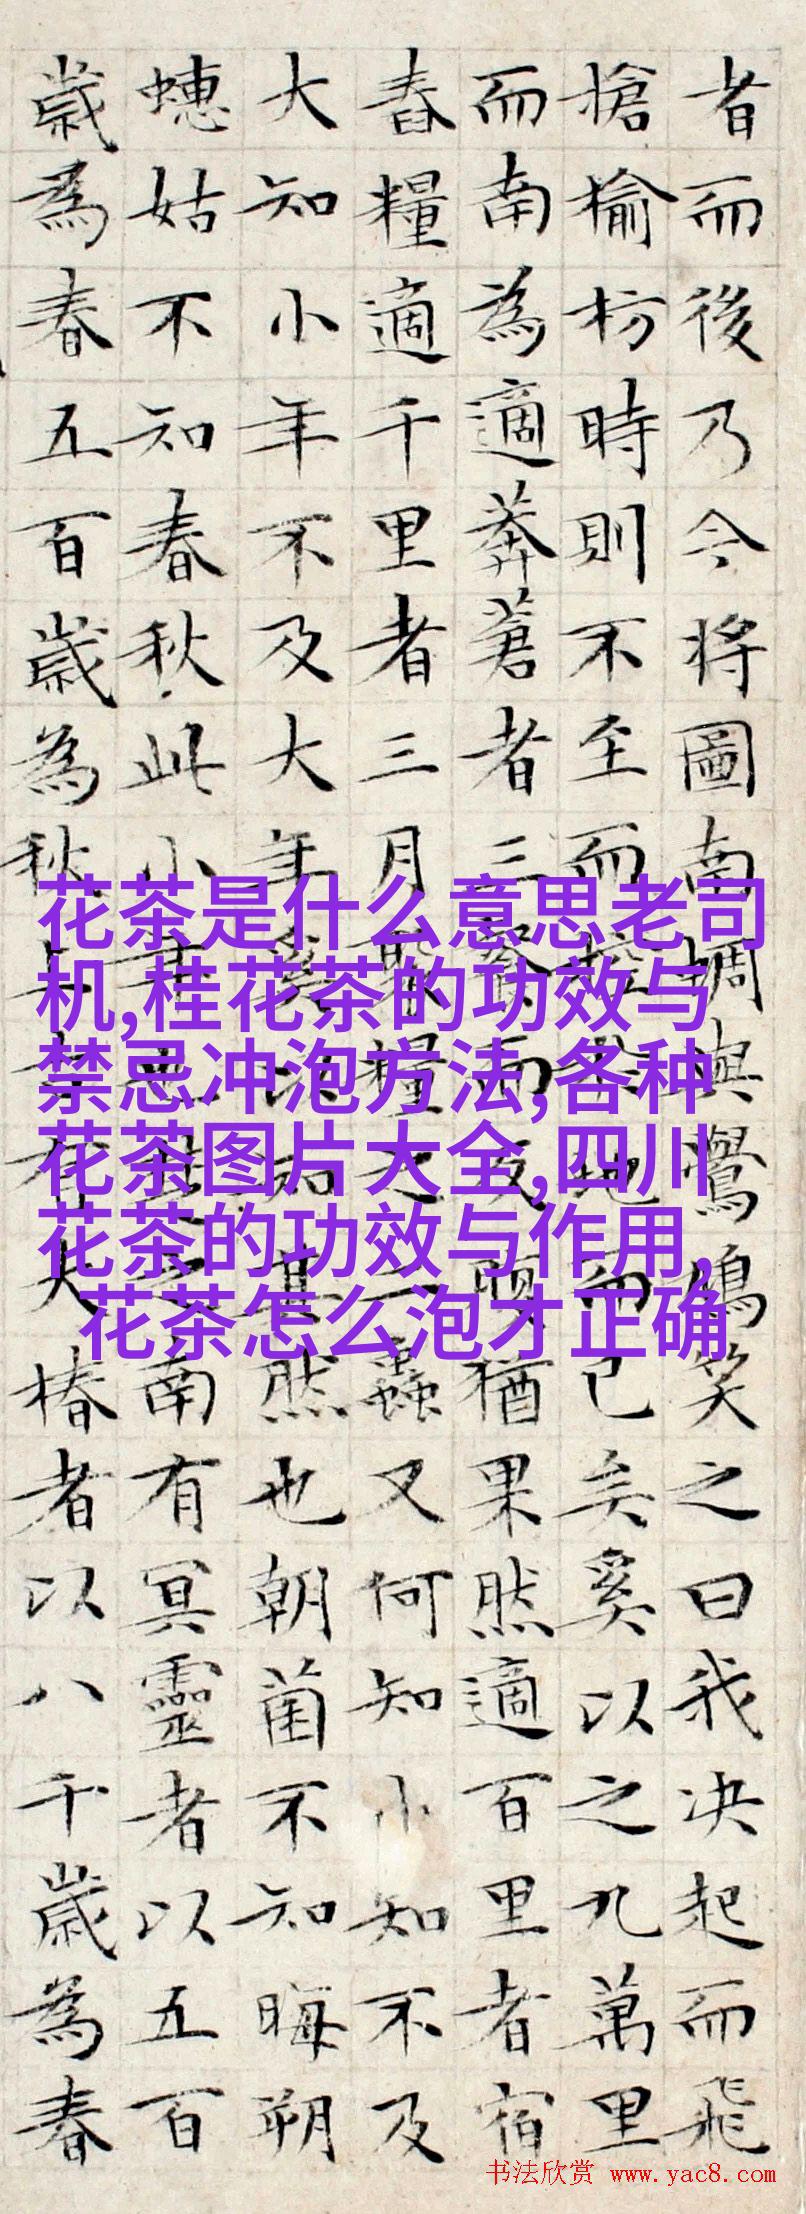 者而後乃今將圖南蜩與鷽鳩笑之曰我决起而飛
搶榆枋時則不至而控於地而已矣奚以之九萬里
而南為適莽蒼者三餐而反腹猶果然適百里者宿
舂糧適千里者三月聚糧之二蟲又何知小知不及
大知小年不及大年奚以知其然也朝菌不知晦朔
蟪姑不知春秋此小年也楚之南有冥靈者以五百
歲為春五百歲為秋上古有大椿者以八千歲為春
花茶是什么意思老司
机,桂花茶的功效与
禁忌冲泡方法,各种
花茶图片大全,四川
花茶的功效与作用,
花茶怎么泡才正确
书法欣赏 www.yac8.com